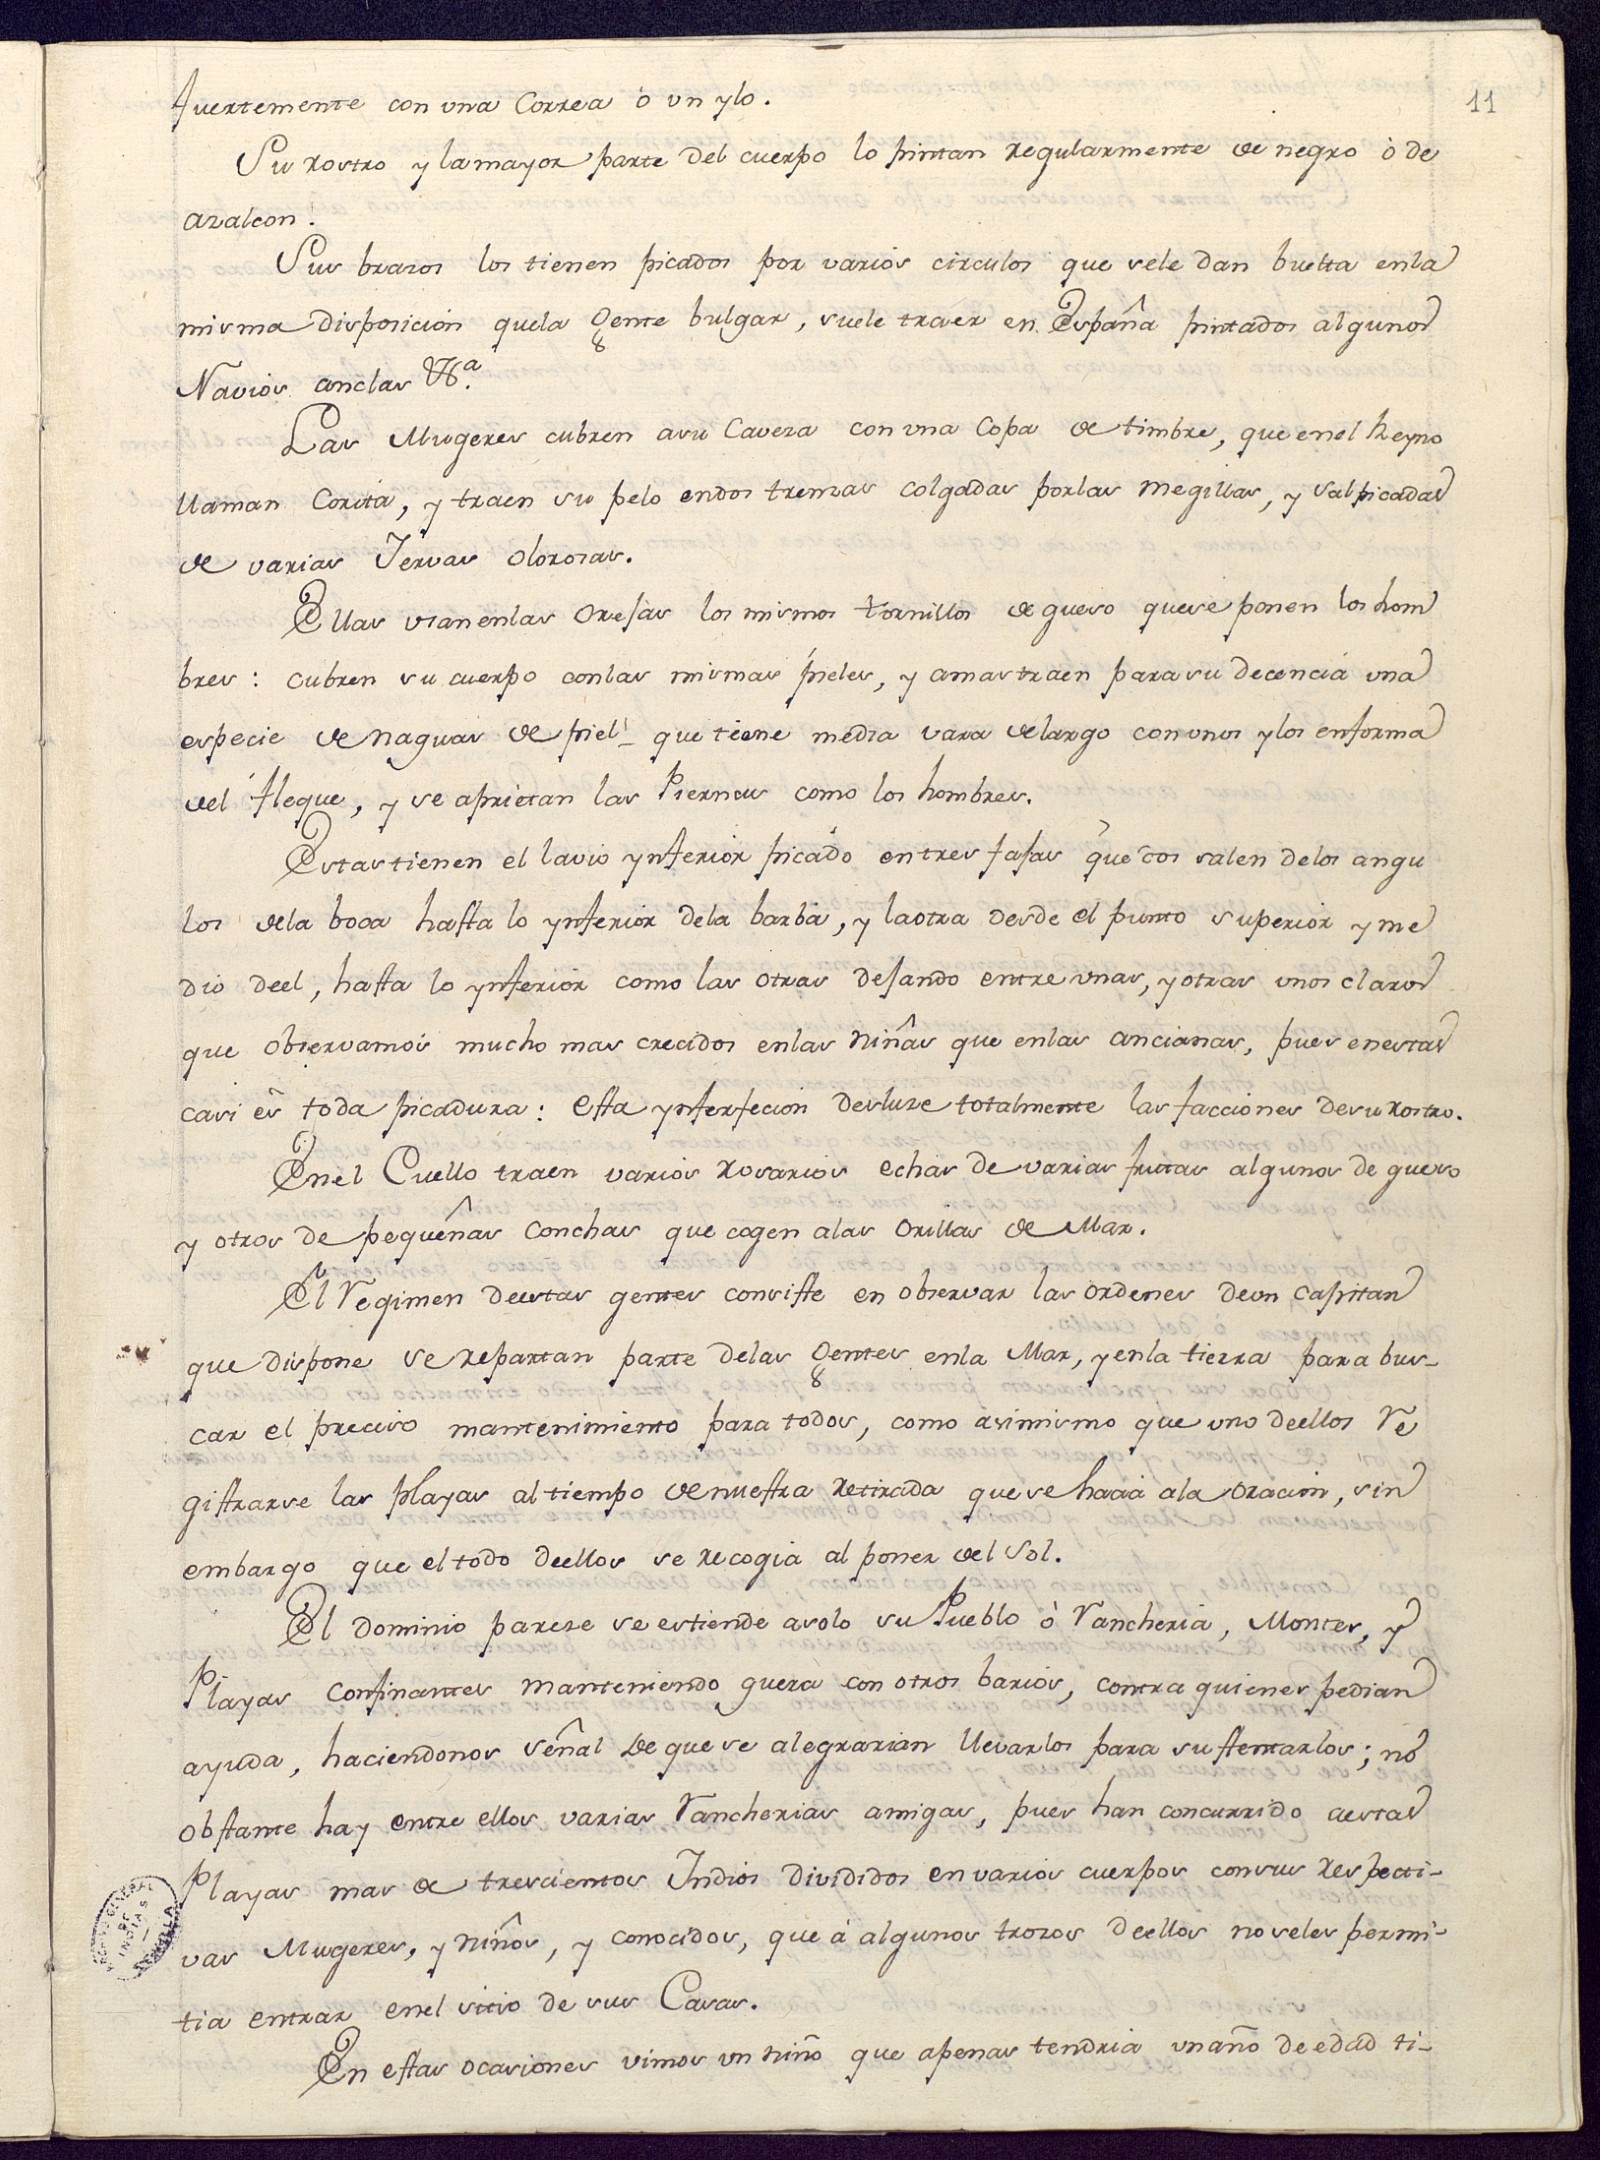 11
fuertemente con una Correa ò un ylo.
Su rostro y la mayor parte del cuerpo lo pintan regularmente de negro ò de
azalcon.
Sus brazos los tienen picados por varios circulos que sele dan buelta enla
misma disposicion quela Gente bulgar, suele traer en España pintados algunos
Navios anclas &ª.
Las Mugeres cubren asu Caveza con una Copa de timbre, que enel Reyno
llaman Corita, y traen su pelo endos trenzas colgadas porlas megillas, y salpicadas
de varias Jervas olorosas.
Ellas usan enlas orejas los mismos tornillos de gueso quese ponen los hom
bres: cubren su cuerpo conlas mismas pieles, y amas traen para su decencia una
especie de naguas de piel que tiene media vara delargo con unos ylos enforma
del fleque, y se aprietan las Piernas como los hombres.
Estas tienen el lavio ynferior picado en tres fajas que dos salen delos angu
los dela boca hasta lo ynferior dela barba, y laotra desde el punto superior y me
dio deel, hasta lo ynferior como las otras dejando entre unas, y otras unos claros
que observamos mucho mas crecidos enlas niñas que enlas ancianas, pues enestas
casi es toda picadura: esta ynperfecion desluze totalmente las facciones desu rostro.
Enel Cuello traen varios rosarios echas de varias frutas algunos de gueso
y otros de pequeñas conchas que cogen alas orillas de Mar.
El Regimen deestas gentes consiste en observar las ordenes deun Capitan
que dispone se repartan parte delas Gentes enla Mar, y enla tierra para bus-
car el preciso mantenimiento para todos, como asimismo que uno deellos Re
gistrarse las playas al tiempo denuestra retirada quese hacia ala oracion, sin
embargo que el todo deellos se recogia al poner del Sol.
El dominio pareze se estiende asolo su Pueblo ò Rancheria, Montes, y
Playas confinantes manteniendo guera con otros barios, contra quienes pedian
ayuda, haciendonos señal de que se alegrarian llevarlos para sustentarlos; no
obstante hay entre ellos varias Rancherias amigas, pues han concurrido aestas
Playas mas de trescientos Indios divididos en varios cuerpos consus respecti-
vas Mugeres, y niños, y conocidos, que à algunos trozos deellos no seles permi-
tia entrar enel sitio de sus Casas.
En estas ocasiones vimos un niño que apenas tendria unaño de edad ti-
ARCHIVO GENERAL DE INDIAS SEVILLA